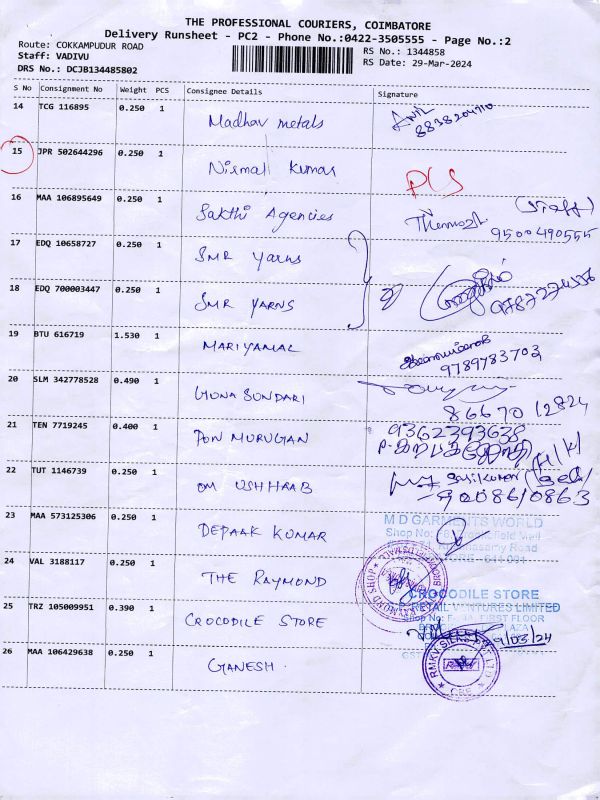 THE PROFESSIONAL COURIERS, COIMBATORE
Delivery Runsheet - PC2 - Phone No.:0422-3505555 - Page No.:2
Route: COKKAMPUDUR ROAD
RS No.: 1344858
Staff: VADIVU
RS Date: 29-Mar-2024
DRS No.: DCJB134485802
S No Consignment No Weight PCS Consignee Details Signature
14 TCG 116895 0.250 1 Madhav metals ANIL
8838204710
15 JPR 502644296 0.250 1 Nirmal Kumar
16 MAA 106895649 0.250 1 Sakthi Agencies (Staff)
9500490555
17 EDQ 10658727 0.250 1 SMR Yarns
18 EDQ 700003447 0.250 1 SMR YARNS
19 BTU 616719 1.530 1 MARIYAMAL
9789783703
20 SLM 342778528 0.490 1 GUNA SUNDARI
86670 12824
21 TEN 7719245 0.400 1 PON MURUGAN 9362393638
22 TUT 1146739 0.250 1 OM USHHAAB
9008610863
23 MAA 573125306 0.250 1 DEPAAK KUMAR M D GARMENTS WORLD
24 VAL 3188117 0.250 1 THE RAYMOND RAYMOND SHOP
25 TRZ 105009951 0.390 1 CROCODILE STORE CROCODILE STORE
RETAIL VENTURES LIMITED
FIRST FLOOR
26 MAA 106429638 0.250 1 GANESH. RMKV SILKS
CBE